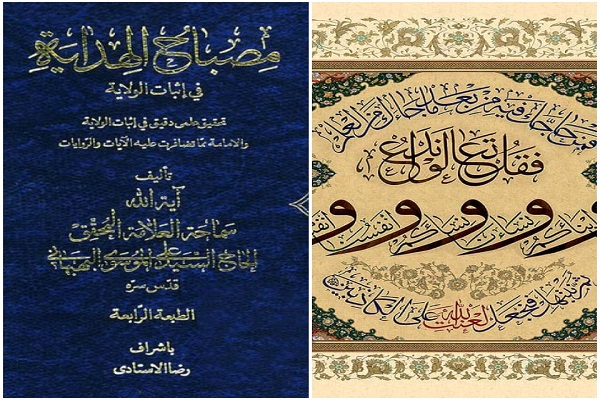 مِصباح الهِداية
في إثبات الولاية
تحقيق علمي دقيق في إثبات الولاية
والامامة بما تضافرت عليه الآيات والروايات
تأليف
آية الله
سماحة العلامة المحقق
الحاج السيد علي الموسوي البهبهاني
قدس سره
الطبعة الرابعة
باشراف
رضا الاستادي
فمن حاجك فيه من بعد ما جاءك من العلم
فقل تعالوا ندع
ثم نبتهل فنجعل لعنت الله على الكاذبين